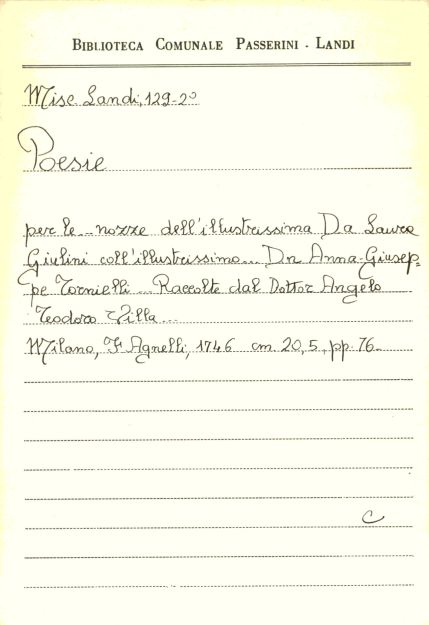 BIBLIOTECA COMUNALE PASSERINI - LANDI
Misc. Landi, 129-2º
Poesie
per le ... nozze dell'illustrissima Da Laura
Giulini coll'illustrissimo... Dn Anna-Giusep-
pe Tornielli... Raccolte dal Dottor Angelo
Teodoro Villa...
Milano, F. Agnelli, 1746 cm. 20,5, pp. 76.
C